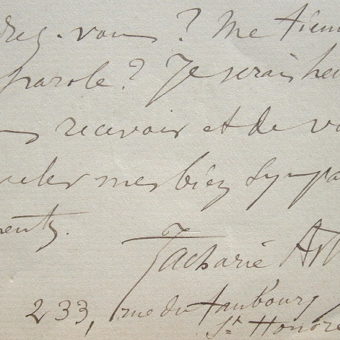 drez-vous ? Me tien
parole ? Je serais heu
s recevoir et de vo
veler mes bien sympa
ments.
Zacharie Ast
233, rue du faubourg
St Honoré